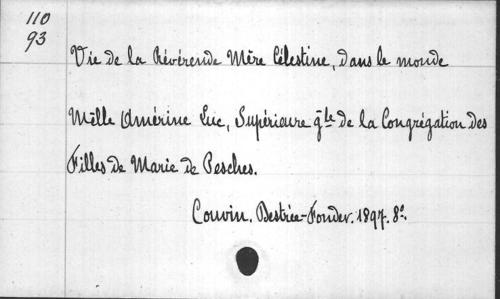 110
93
Vie de la Révérende Mère Célestine, dans le monde
Mèlle Amérine Luc, Supérieure gle de la Congrégation des
Filles de Marie de Pesches.
Couvin, Bestrée-Fonder. 1897. 8o.